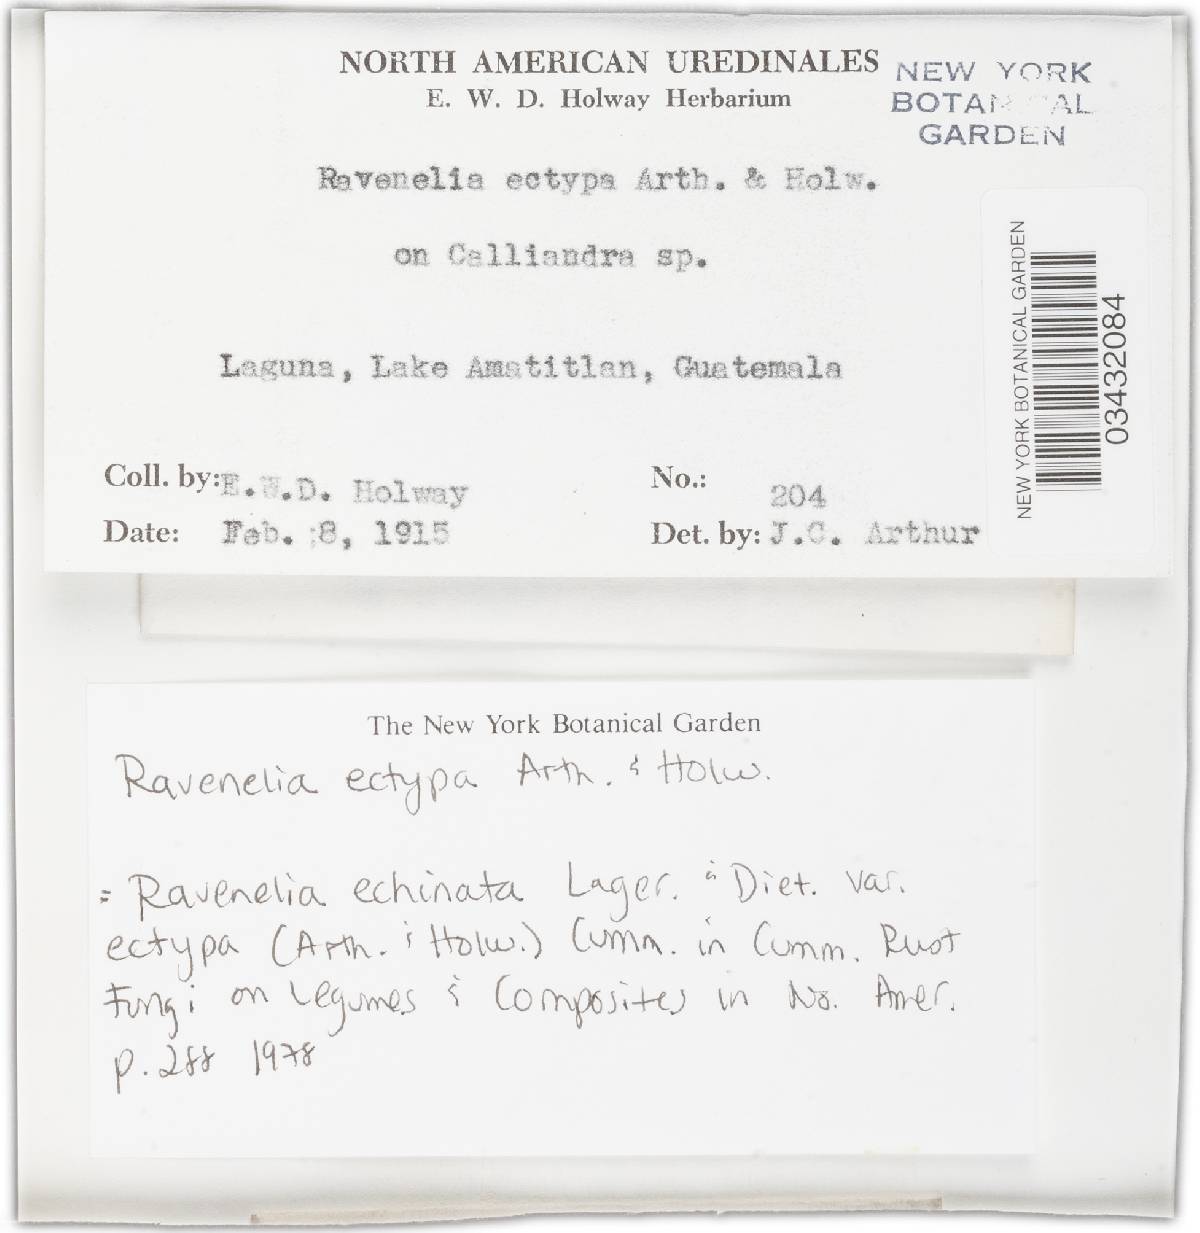 NORTH AMERICAN UREDINALES
E. W. D. Holway Herbarium
NEW YORK
BOTANICAL
GARDEN
Ravenelia ectypa Arth. & Holw.
on Calliandra sp.
Laguna, Lake Amatitlan, Guatemala
Coll. by: E.W.D. Holway
No.: 204
Date: Feb. 8, 1915
Det. by: J.C. Arthur
NEW YORK BOTANICAL GARDEN
03432084
The New York Botanical Garden
Ravenelia ectypa Arth. & Holw.
= Ravenelia echinata Lager. & Diet. var.
ectypa (Arth. & Holw.) Cumm. in Cumm. Rust
Fungi on Legumes & Composites in No. Amer.
p. 288 1978